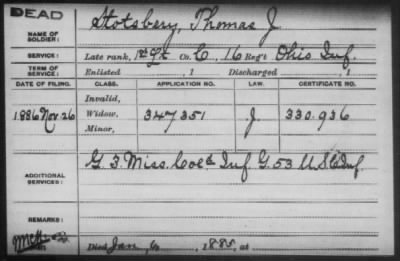 DEAD
NAME OF SOLDIER: Stotsbery, Thomas J.
SERVICE: Late rank, 1st Sgt Co. C, 16 Reg't Ohio Inf.
TERM OF SERVICE: Enlisted , 1 Discharged , 1
DATE OF FILING. CLASS. APPLICATION NO. LAW. CERTIFICATE NO.
Invalid,
1886 Nov. 26 Widow, 347351 J. 330.936
Minor,
ADDITIONAL SERVICES: G. 3. Miss. Col'd Inf. G. 53 U.S.C. Inf.
REMARKS:
Died Jan 6, 1885, at